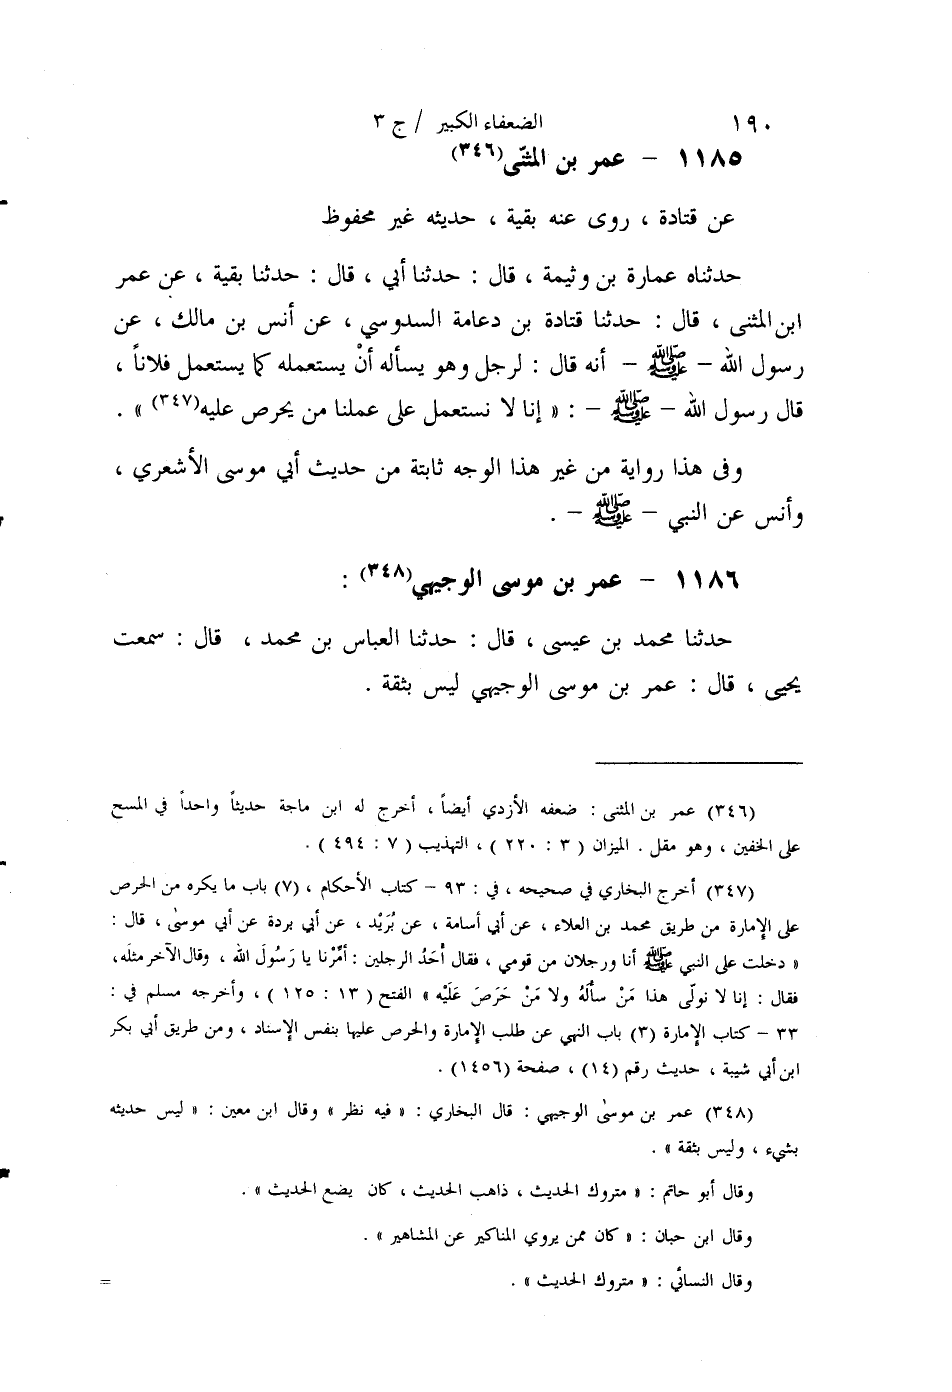 ١٩٠ الضعفاء الكبير / ج ٣
١١٨٥ - عمر بن المثنّى(٣٤٦)
عن قتادة ، روى عنه بقية ، حديثه غير محفوظ
حدثناه عمارة بن وثيمة ، قال : حدثنا أبي ، قال : حدثنا بقية ، عن عمر
ابن المثنى ، قال : حدثنا قتادة بن دعامة السدوسي ، عن أنس بن مالك ، عن
رسول الله - ﷺ - أنه قال : لرجل وهو يسأله أنْ يستعمله كما يستعمل فلاناً ،
قال رسول الله - ﷺ - : « إنا لا نستعمل على عملنا من يحرص عليه(٣٤٧) » .
وفى هذا رواية من غير هذا الوجه ثابتة من حديث أبي موسى الأشعري ،
وأنس عن النبي - ﷺ - .
١١٨٦ - عمر بن موسى الوجيهي(٣٤٨) :
حدثنا محمد بن عيسى ، قال : حدثنا العباس بن محمد ، قال : سمعت
يحيى ، قال : عمر بن موسى الوجيهي ليس بثقة .
(٣٤٦) عمر بن المثنى : ضعفه الأزدي أيضاً ، أخرج له ابن ماجة حديثاً واحداً في المسح
على الخفين ، وهو مقل . الميزان ( ٣ : ٢٢٠ ) ، التهذيب ( ٧ : ٤٩٤ ) .
(٣٤٧) أخرج البخاري في صحيحه ، في : ٩٣ - كتاب الأحكام ، (٧) باب ما يكره من الحرص
على الإمارة من طريق محمد بن العلاء ، عن أبي أسامة ، عن بُرَيْد ، عن أبي بردة عن أبي موسىٰ ، قال :
« دخلت على النبي ﷺ أنا ورجلان من قومي ، فقال أَحَدُ الرجلين : أمِّرْنا يا رَسُولَ الله ، وقال الآخر مثلَه،
فقال : إنا لا نولّى هذا مَنْ سألَهُ ولا مَنْ حَرَصَ عَلَيْه » الفتح ( ١٣ : ١٢٥ ) ، وأخرجه مسلم في :
٣٣ - كتاب الإمارة (٣) باب النهي عن طلب الإمارة والحرص عليها بنفس الإسناد ، ومن طريق أبي بكر
ابن أبي شيبة ، حديث رقم (١٤) ، صفحة (١٤٥٦) .
(٣٤٨) عمر بن موسىٰ الوجيهي : قال البخاري : « فيه نظر » وقال ابن معين : « ليس حديثه
بشيء ، وليس بثقة » .
وقال أبو حاتم : « متروك الحديث ، ذاهب الحديث ، كان يضع الحديث » .
وقال ابن حبان : « كان ممن يروي المناكير عن المشاهير » .
وقال النسائي : « متروك الحديث » . =